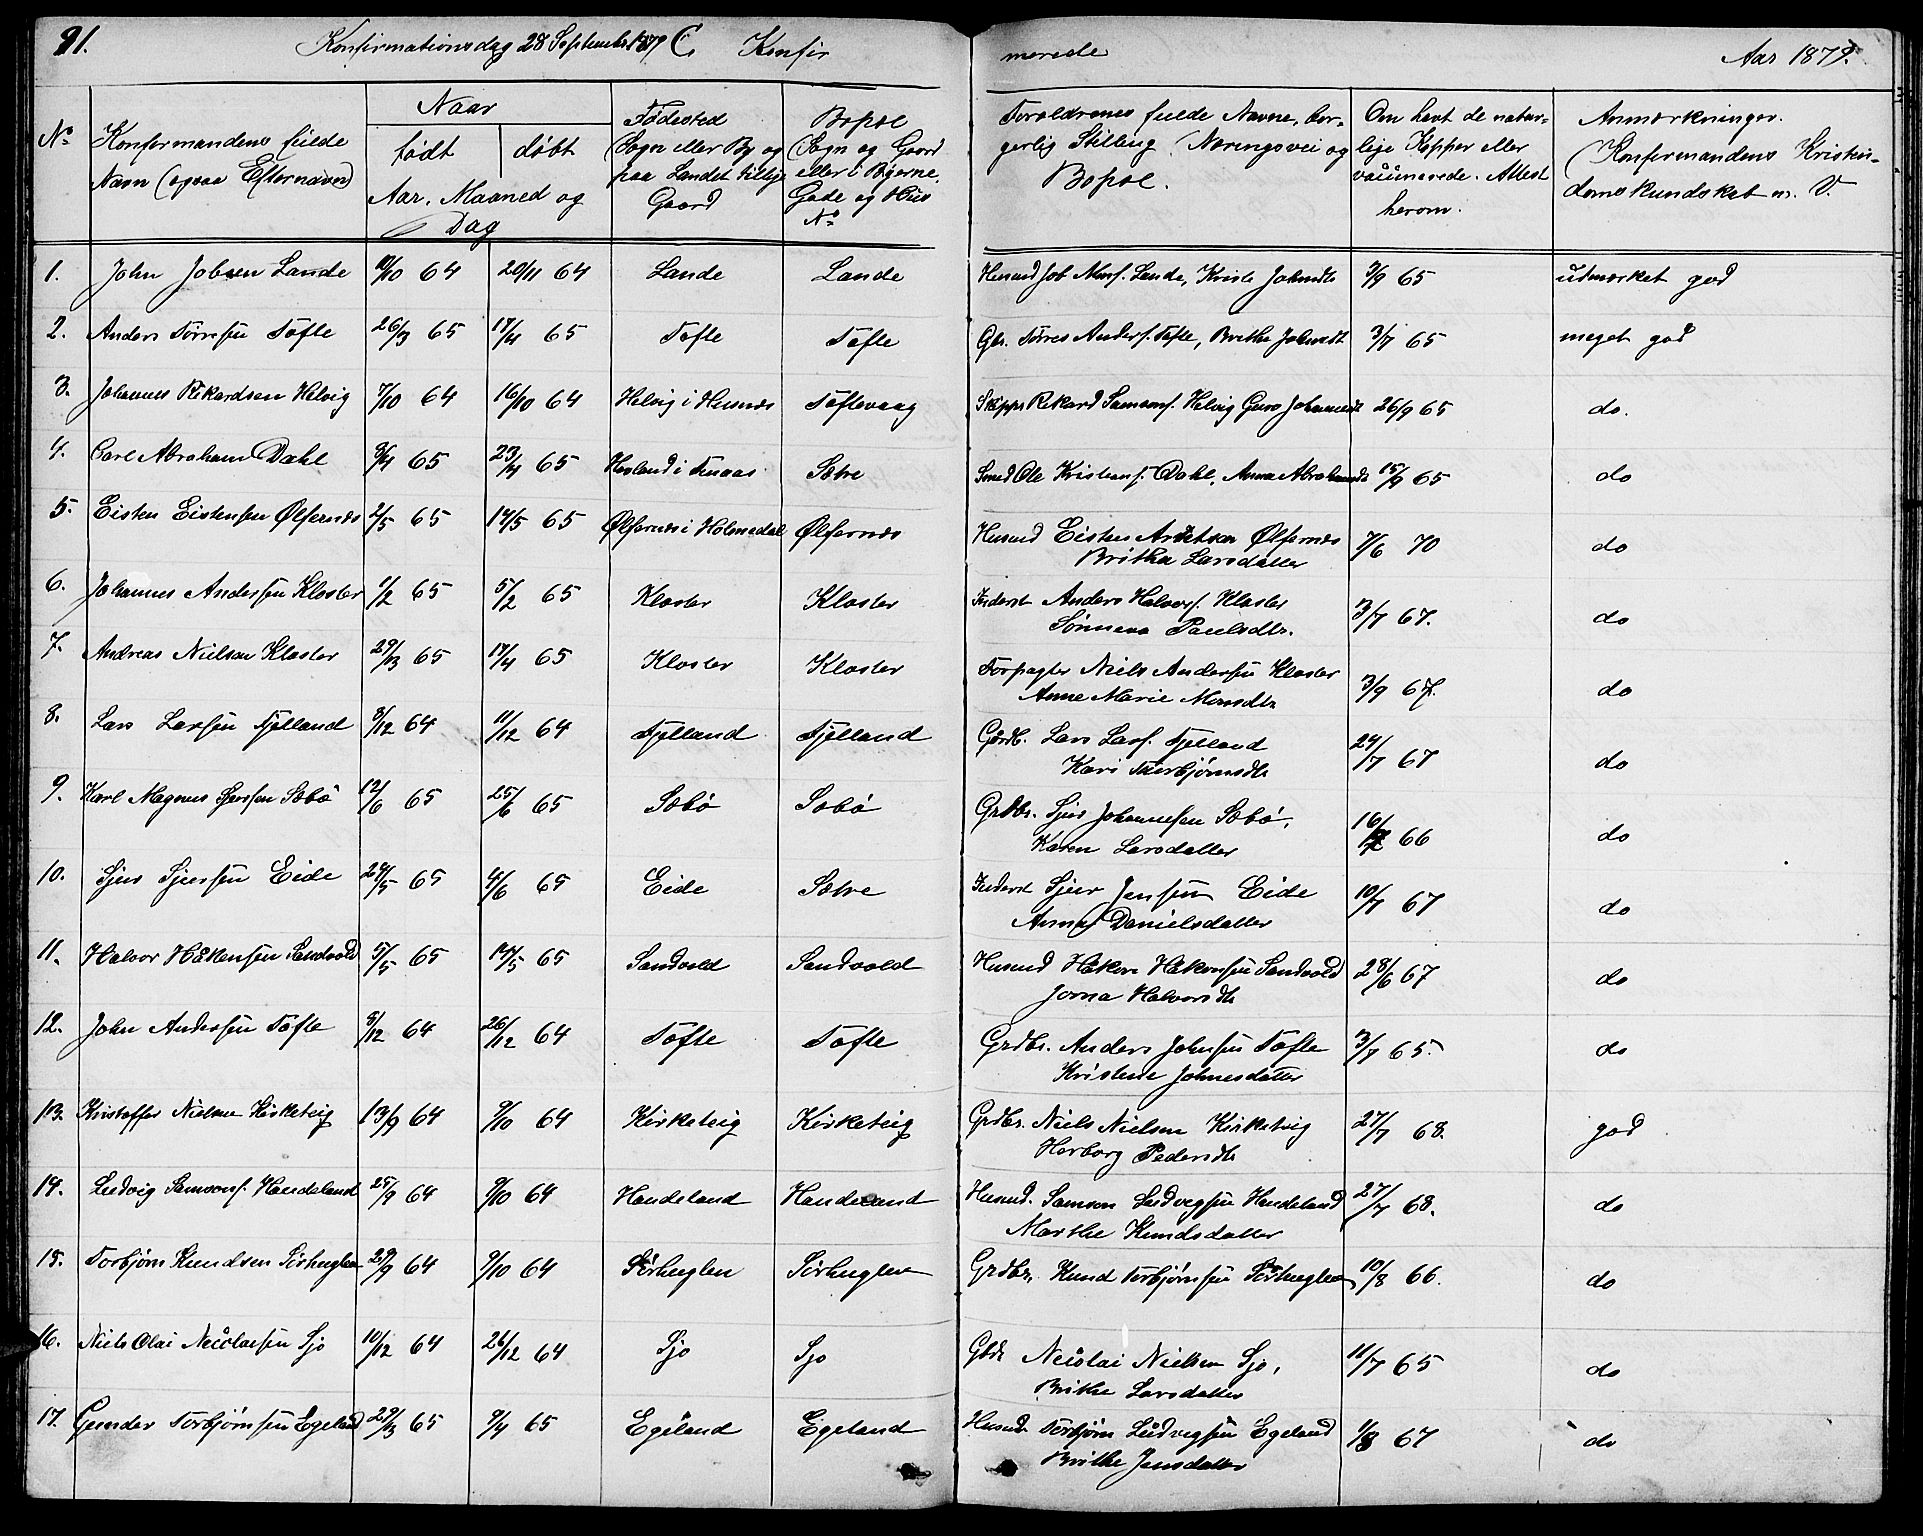 91. Konfirmationsdag 28 September 1879 C. Konfir
merede Aar 1879.
No Konfirmandens fulde Navn (ogsaa Efternavn)
Naar født døbt Aar, Maaned og Dag
Fødested (Sogn eller By og paa Landet tillige Gaard
Bopæl (Sogn og Gaard eller i Byerne Gade og Hus No
Forældrenes fulde Navne, borgerlig Stilling (Næringsvei og Bopæl.
Om havt de naturlige Kopper eller vaccinerede. Attest herom.
Anmærkninger. (Konfirmandens Kristendomskundskab m. V.
1. John Jobsen Lande 11/10 64 20/11 64 Lande Lande Husmd Job Lande, Kriste Johnsdtr 3/9 65 udmærket god
2. Anders Tørresen Tofte 26/3 65 17/4 65 Tofte Tofte Gbr. Tørres Andersf. Tofte, Brithe Johnsdt 3/7 65 meget god
3. Johannes Rikardsen Helvig 7/10 64 16/10 64 Helvig i Husnæs Toftevaag Skipper Rikard Samsonf. Helvig Guro Johannesdt 26/9 65 do.
4. Carl Abraham Dahl 3/4 65 23/4 65 i Sætre Smed Ole Kristiansf. Dahl, Anna Abrahamsdt 15/9 65 do
5. Eisten Eistensen Ølfernæs 2/5 65 14/5 65 Ølfernæs i Holmedal Ølfernæs Husmd Eisten Ølfernæs 7/6 70 do
Britha Larsdatter
6. Johannes Andersen Kloster 1/2 65 5/2 65 Kloster Kloster Inderst Anders Halvorsf. Kloster 3/7 67. do
Sønneva Paulsdtr.
7. Andreas Nielsen Kloster 29/3 65 17/4 65 Kloster Kloster Forpagter Niels Andersen Kloster 3/9 67. do
Anne Marie Monsdtr
8. Lars Larsen Fjelland 8/12 64 11/12 64 Fjelland Fjelland Gårdb. Lars Larsf. Fjelland 24/7 67 do
Kari Thorbjørnsdtr
9. Karl Magnus Sjursen Sæbø 12/6 65 25/6 65 Sæbø Sæbø Grdbr. Sjur Johannesen Sæbø, 16/7 66 do
Karen Larsdatter
10. Sjur Sjursen Eide 24/5 65 4/6 65 Eide Sætre Inderst Sjur Jensen Eide 10/7 67 do
Anna Danielsdatter
11. Halvor Håkensen Sandvold 5/5 65 14/5 65 Sandvold Sandvold Husmd Håken Håkensen Sandvold 28/6 67 do
Jorna Halvorsdtr
12. John Andersen Tofte 5/12 64 26/12 64 Tofte Tofte Grdbr. Anders Johnsen Tofte 3/7 65. do
Kristine Johnesdatter
13. Kristoffer Nielsen Kirketeig 13/9 64 9/10 64 Kirketeig Kirketeig Grdbr. Niels Nielsen Kirketeig 27/7 68. god
Herborg Pedersdtr
14. Ludvig Samsonsf. Handeland 25/9 64 9/10 64 Handeland Handeland Husmd. Samson Ludvigsen Handeland 27/7 68. do
Marthe Knudsdatter
15. Torbjørn Knudsen Sørhuglen 29/9 64 9/10 64 Sørhuglen Sørhuglen Grdbr. Knud Torbjørnsen Sørhuglen 10/8 66. do
16. Niels Olai Nicolaisen Sjo 10/12 64 26/12 64 Sjo Sjo Gbdr Nicolai Nielsen Sjo, 11/7 65 do
Brithe Larsdatter
17. Gunder Torbjørnsen Egeland 29/3 65 9/4 65 Egeland Egeland Husmd. Torbjørn Ludvigsen Egeland 1/8 67 do
Brithe Jensdatter